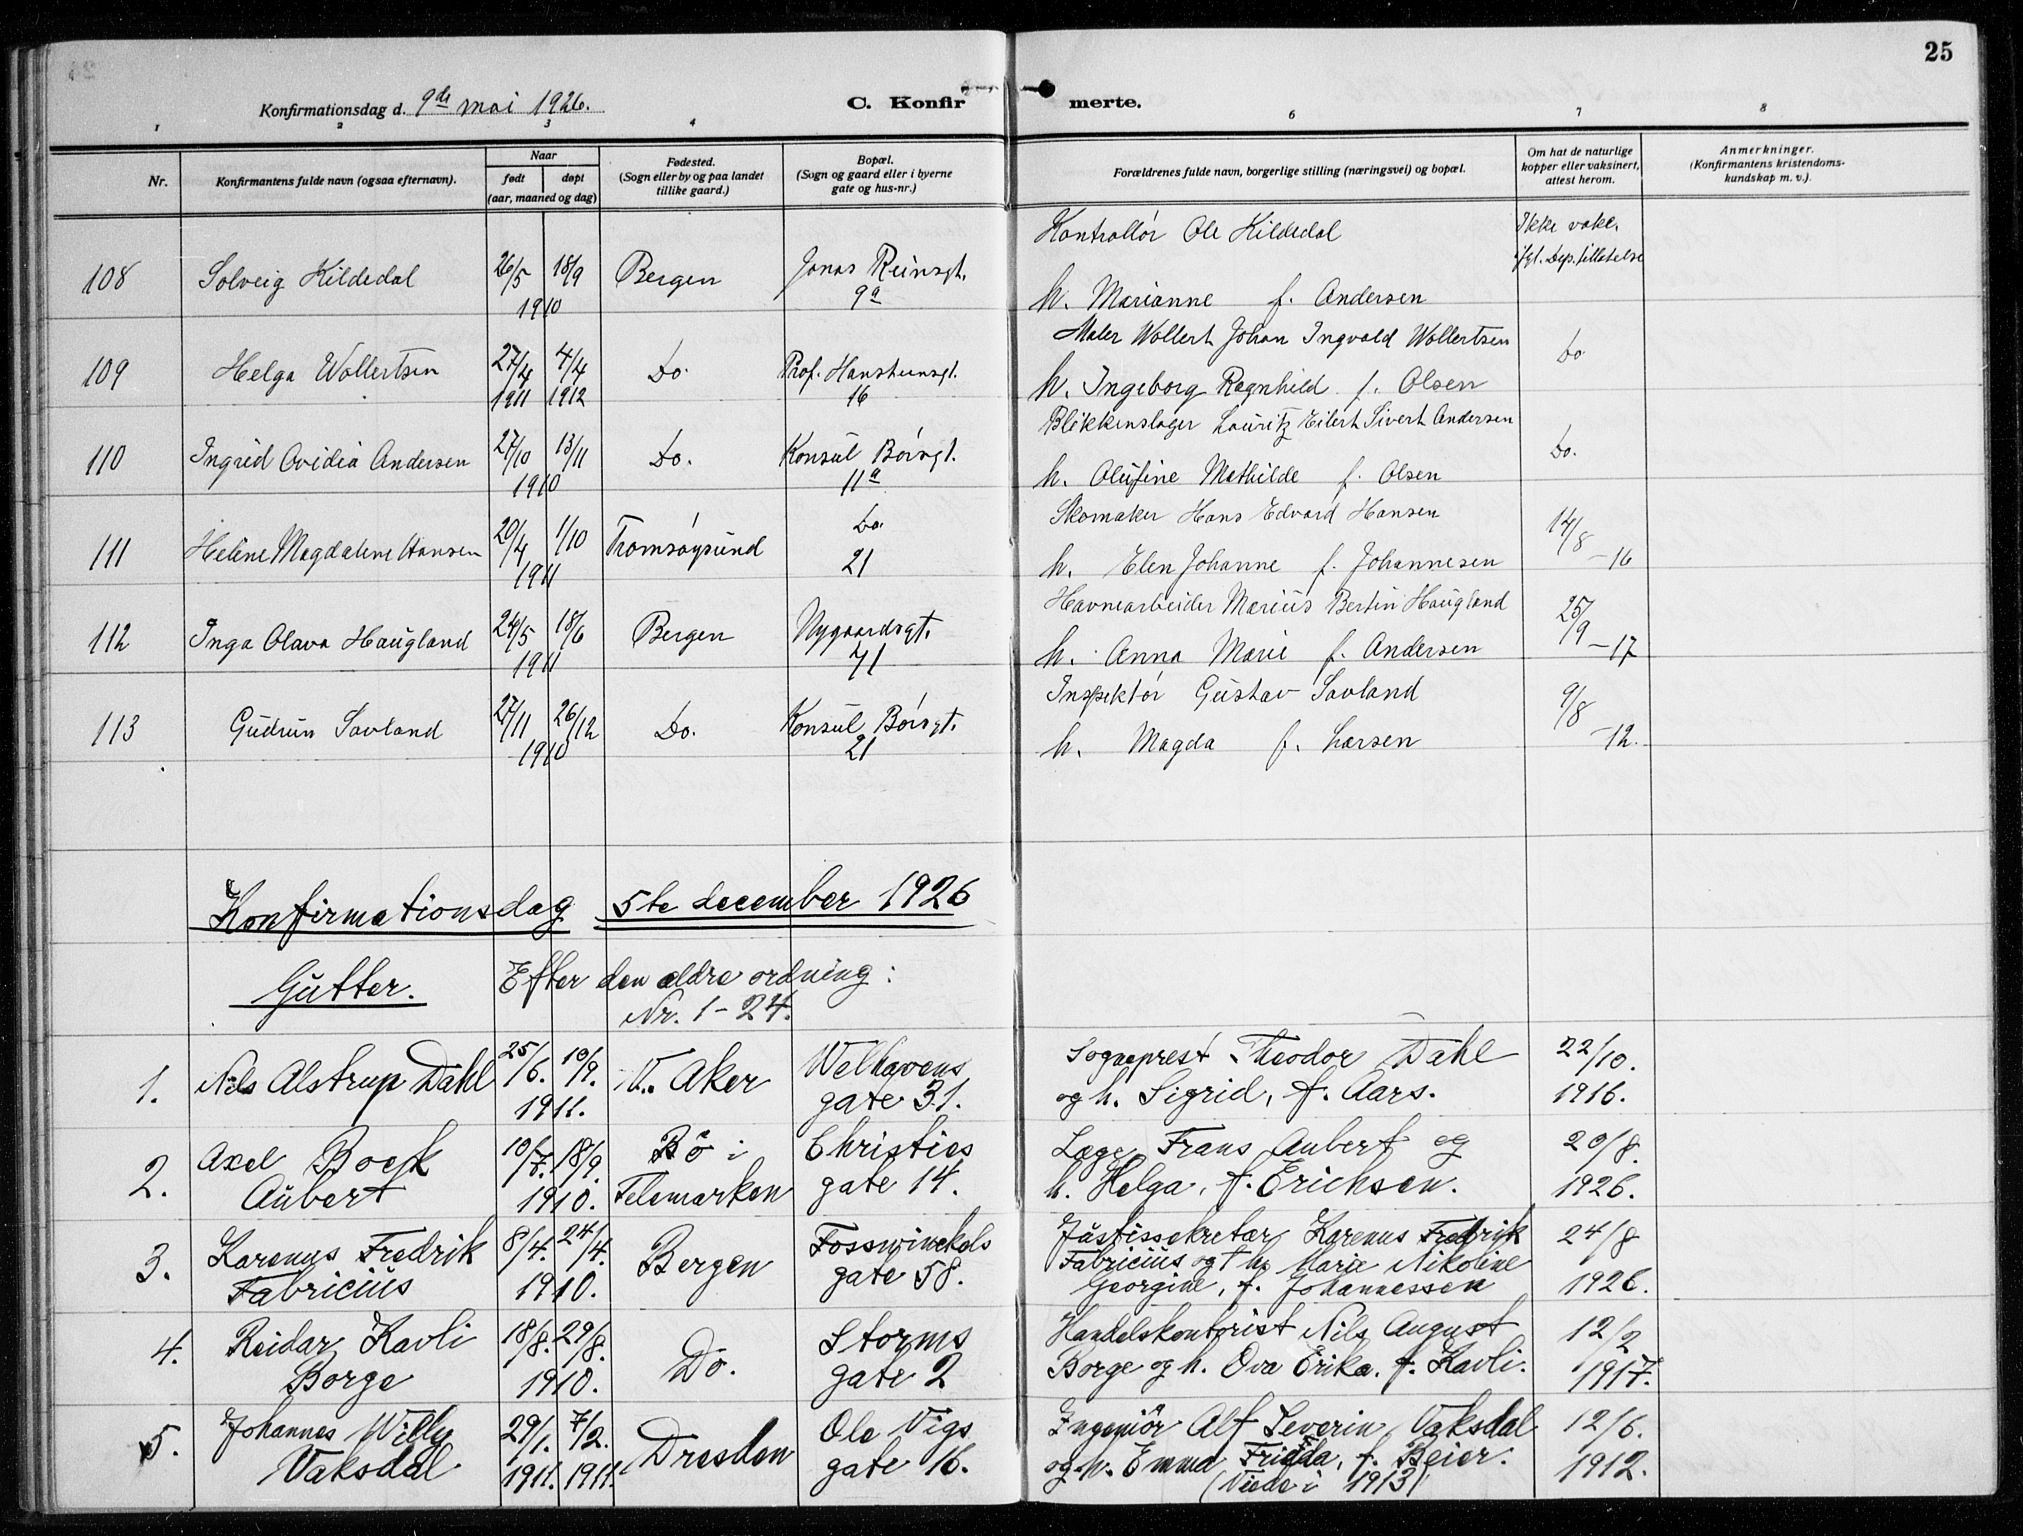 25
Konfirmationsdag d. 9de mai 1926.
C. Konfirmerte.
1 2 3 4 6 7 8
Nr.
Konfirmantens fulde navn (ogsaa efternavn).
Naar
født døpt
(aar, maaned og dag)
Fødested.
(Sogn eller by og paa landet
tillike gaard.)
Bopæl.
(Sogn og gaard eller i byerne
gate og hus-nr.)
Forældrenes fulde navn, borgerlige stilling (næringsvei) og bopæl.
Om hat de naturlige
kopper eller vaksinert,
attest herom.
Anmerkninger.
(Konfirmantens kristendoms-
kundskap m. v.).
Kontrollør Ole Kildedal Ikke vakc.
108 Solveig Kildedal 26/5 18/9 Bergen Jonas Reinsgt. ifgl. Dep. tillatelse
1910 9a h. Marianne f. Andersen
Maler Wollert Johan Ingvald Wollertsen
109 Helga Wollertsen 27/4 4/4 Do. Prof. Hansteensgt. Do
1911 1912 16 h. Ingeborg Ragnhild f. Olsen
Blikkenslager Lauritz Eilert Sivert Andersen
110 Ingrid Ovidia Andersen 27/10 13/11 Do. Konsul Børsgt. Do.
1910 11a h. Olufine Mathilde f. Olsen
Skomaker Hans Edvard Hansen
111 Heline Magdalene Hansen 20/4 1/10 Tromsøysund Do. 14/8 -16
1911 21 h. Elen Johanne f. Johannesen
Havnearbeider Marius Bertin Haugland
112 Inga Olava Haugland 24/5 18/6 Bergen Nygaardsgt. 25/9 -17
1911 71 h. Anna Marie f. Andersen
Inspektør Gustav Savland
113 Gudrun Savland 27/11 26/12 Do. Konsul Børsgt. 9/8 -12.
1910 21 h. Magda f. Larsen
Konfirmationsdag 5te december 1926
Gutter. Efter den ældre ordning:
Nr. 1-24.
1. Nils Alstrup Dahl 25/6. 10/9. V. Aker Welhavens Sogneprest Theodor Dahl 22/10.
1911. gate 31. og h. Sigrid, f. Aars. 1916.
2. Axel Boeck 10/7. 18/9. Bø i Christies Læge Frans Aubert og 20/8.
Aubert 1910. Telemarken gate 14. h. Helga, f. Erichsen. 1926.
3. Karenus Fredrik 8/4. 24/4. Bergen Fosswinckels Justissekretær Karenus Fredrik 24/8
Fabricius 1910. gate 58. Fabricius og † h. Marie Nikoline
Georgine, f. Johannessen 1926.
4. Reidar Kavli 18/8. 29/8. Do. Storms Handelskontorist Nils August 12/2
Borge 1910. gate 2 Borge og h. Ova Erika. f. Kavli. 1917.
5. Johannes Willy 29/1. 7/2. Dresden Ole Vigs Ingeniør Alf Severin Vaksdal 12/6.
Vaksdal 1911. 1911. gate 16. og h. Emma Frieda, f. Beier. 1912.
(Viede i 1913)